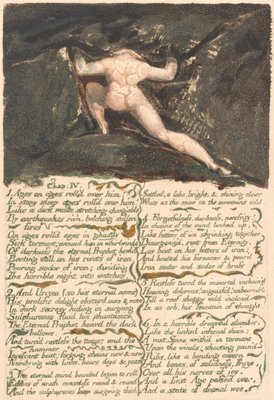 Chap: IV.
1. Ages on ages roll'd over him!
In stony sleep ages roll'd over him!
Like a dark waste stretching chang'able
By earthquakes riv'n, belching sullen
fires
On ages roll'd ages in ghastly
Sick torment; around him in whirlwinds
Of darkness the eternal Prophet howl'd
Beating still on his rivets of iron
Pouring sodor of iron; dividing
The horrible night into watches.
2. And Urizen (so his eternal name)
His prolific delight obscurd more & more
In dark secresy hiding in surgeing
Sulphureous fluid his phantasies.
The Eternal Prophet heavd the dark
bellows,
And turn'd restless the tongs; and the
hammer
Incessant beat; forging chains new & new
Numb'ring with links. hours, days & years
3. The eternal mind bounded began to roll
Eddies of wrath ceaseless round & round
And the sulphureous foam surgeing thick
Settled, a lake, bright, & shining clear:
White as the snow on the mountains cold.
4. Forgetfulness, dumbness, necessity!
In chains of the mind locked up,
Like fetters of ice shrinking together
Disorganiz'd, rent from Eternity,
Los beat on his fetters of iron;
And heated his furnaces & pour'd
Iron sodor and sodor of brass
5. Restless turnd the immortal inchain'd
Heaving dolorous! anguish'd! unbearable
Till a roof shaggy wild inclos'd
In an orb, his fountain of thought.
6. In a horrible dreamful slumber;
Like the linked infernal chain;
A vast Spine writh'd in torment
Upon the winds; shooting pain'd
Ribs, like a bending cavern
And bones of solidness, froze
Over all his nerves of joy.
And a first Age passed over,
And a state of dismal woe.